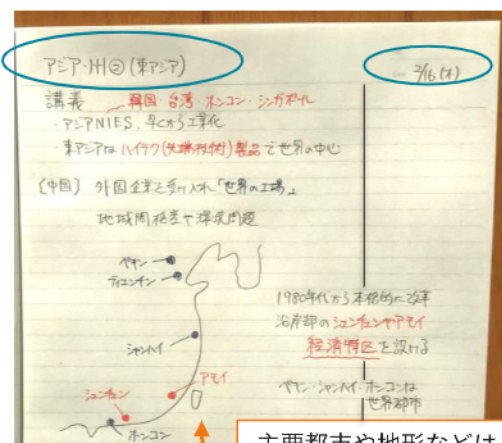 アジア州②(東アジア)
2/16(木)
講義
韓国・台湾・ホンコン・シンガポール
・アジアNIES、早くから工業化
・東アジアはハイテク(先端技術)製品で世界の中心
〔中国〕 外国企業を受け入れ「世界の工場」
地域間格差や環境問題
ペキン
テンチン
シャンハイ
アモイ
シェンチェン
ホンコン
1980年代から本格的に改革
沿岸部のシェンチェンやアモイ
経済特区を設ける
ペキン・シャンハイ・ホンコンは
世界都市
主要都市や地形などは